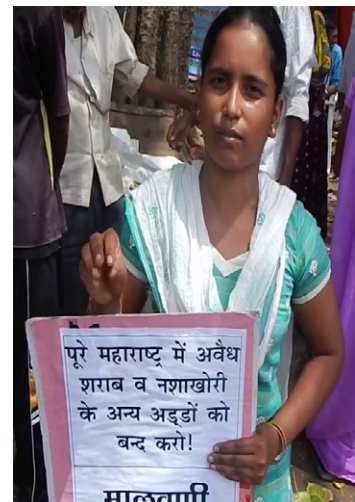 पूरे महाराष्ट्र में अवैध
शराब व नशाखोरी
के अन्य अड्डों को
बन्द करो!
मालवाणी